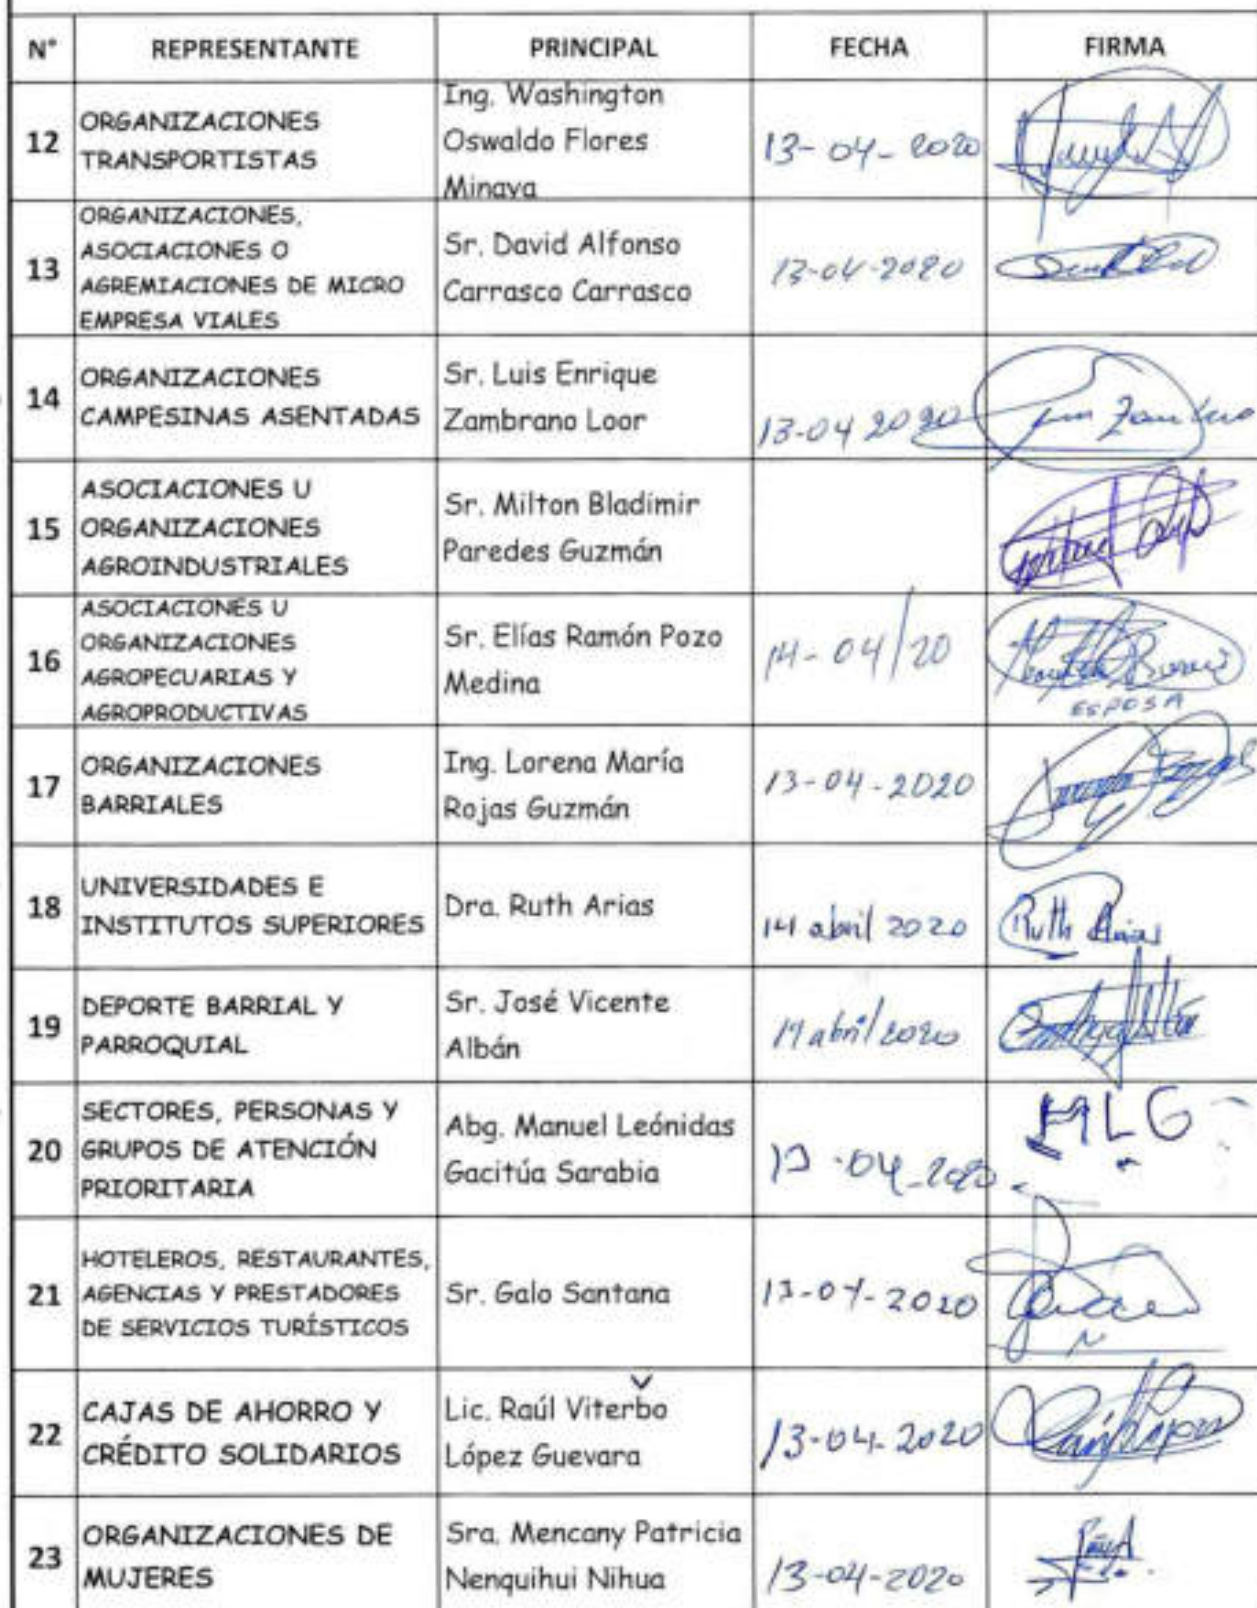 N° REPRESENTANTE PRINCIPAL FECHA FIRMA
12 ORGANIZACIONES TRANSPORTISTAS Ing. Washington Oswaldo Flores Minaya 13-04-2020
13 ORGANIZACIONES, ASOCIACIONES O AGREMIACIONES DE MICRO EMPRESA VIALES Sr. David Alfonso Carrasco Carrasco 13-04-2020
14 ORGANIZACIONES CAMPESINAS ASENTADAS Sr. Luis Enrique Zambrano Loor 13-04 2020
15 ASOCIACIONES U ORGANIZACIONES AGROINDUSTRIALES Sr. Milton Bladimir Paredes Guzmán
16 ASOCIACIONES U ORGANIZACIONES AGROPECUARIAS Y AGROPRODUCTIVAS Sr. Elías Ramón Pozo Medina 14-04/20 ESPOSA
17 ORGANIZACIONES BARRIALES Ing. Lorena María Rojas Guzmán 13-04-2020
18 UNIVERSIDADES E INSTITUTOS SUPERIORES Dra. Ruth Arias 14 abril 2020 Ruth Arias
19 DEPORTE BARRIAL Y PARROQUIAL Sr. José Vicente Albán 14 abril 2020
20 SECTORES, PERSONAS Y GRUPOS DE ATENCIÓN PRIORITARIA Abg. Manuel Leónidas Gacitúa Sarabia 13-04-2020 MLG
21 HOTELEROS, RESTAURANTES, AGENCIAS Y PRESTADORES DE SERVICIOS TURÍSTICOS Sr. Galo Santana 13-04-2020
22 CAJAS DE AHORRO Y CRÉDITO SOLIDARIOS Lic. Raúl Viterbo López Guevara 13-04-2020
23 ORGANIZACIONES DE MUJERES Sra. Mencany Patricia Nenquihui Nihua 13-04-2020